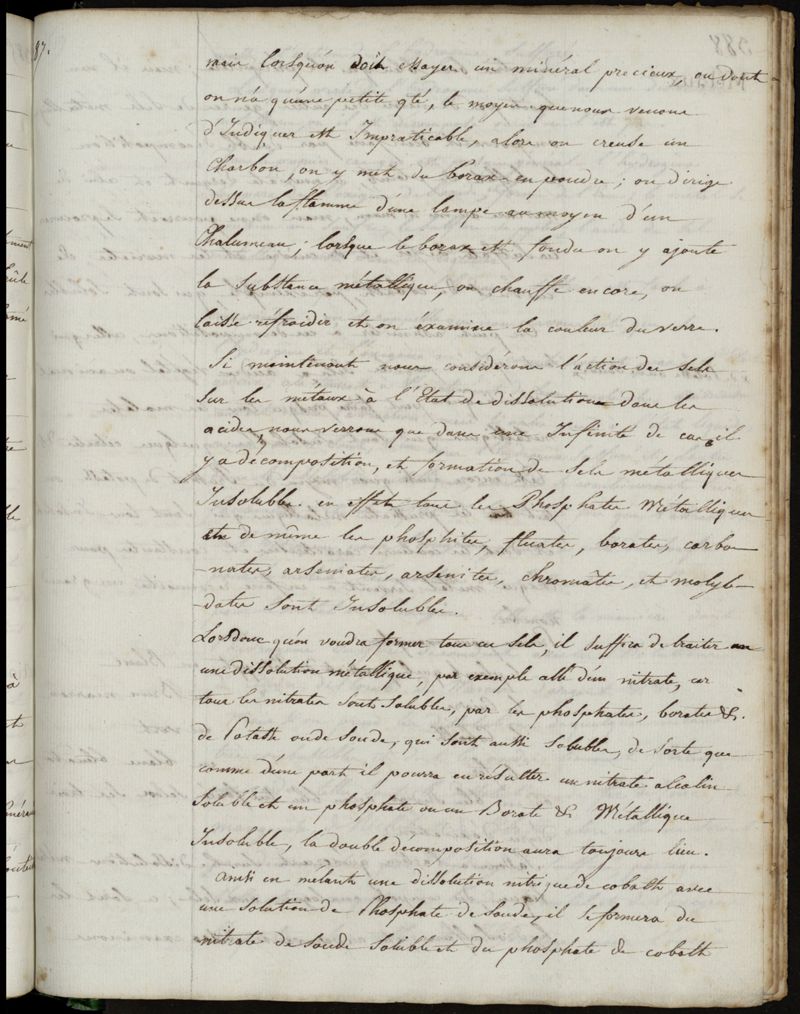 87.
mais lorsqu'on doit essayer un minéral precieux, ou dont
on n'a qu'une petite qté, le moyen que nous venons
d'Indiquer est Impraticable, alors on creuse un
Charbon, on y met du borax en poudre; on dirige
dessus la flamme d'une lampe au moyen d'un
Chalumeau; lorsque le borax est fondu on y ajoute
la substance métallique, on chauffe encore, on
laisse réfroidir et on éxamine la couleur du verre.
Si maintenant nous considérons l'action des sels
sur les métaux à l'Etat de dissolution dans les
acides, nous verrons que dans une Infinité de cas, il
y a décomposition, et formation de sels métalliques
Insolubles. en effet tous les Phosphates Métalliques
de même les phosphites, fluates, borates, carbo
-nates, arseniates, arsenites, chromâtes, et molyb-
-dates sont Insolubles.
Lors donc qu'on voudra former tous ces sels, il suffira de traiter
une dissolution métallique, par exemple celle d'un nitrate, car
tous les nitrates sont solubles, par les phosphates, borates &.
de Potasse ou de Soude, qui sont aussi solubles, de sorte que
comme d'une part il pourra en résulter un nitrate alcalin
soluble et un phosphate ou un Borate & Métallique
Insoluble, la double décomposition aura toujours lieu.
Ainsi en mêlant une dissolution nitrique de cobalt avec
une solution de Phosphate de Soude, il se formera du
nitrate de soude soluble et du phosphate de cobalt